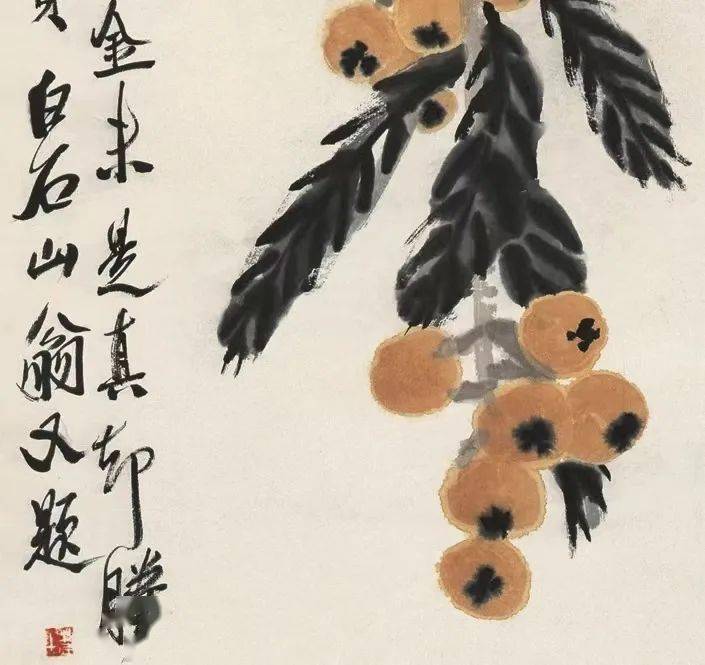 金未是真却勝
白石山翁又題